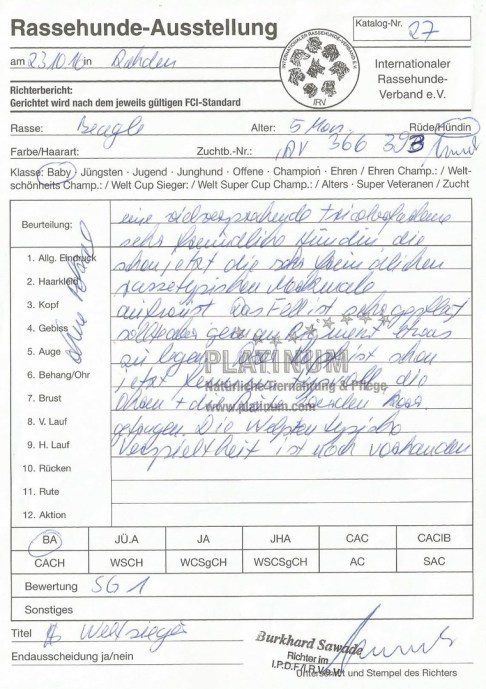 Rassehunde-Ausstellung
Katalog-Nr. 27
am 23.10.16 in Rahden
INTERNATIONALER RASSEHUNDE-VERBAND E.V.
IRV
Internationaler
Rassehunde-
Verband e.V.
Richterbericht:
Gerichtet wird nach dem jeweils gültigen FCI-Standard
Rasse: Beagle Alter: 5 Mon. Rüde/Hündin
Farbe/Haarart: Zuchtb.-Nr.: IRV 366 393
Klasse: Baby · Jüngsten · Jugend · Junghund · Offene · Champion · Ehren / Ehren Champ.: / Welt-
schönheits Champ.: / Welt Cup Sieger: / Welt Super Cup Champ.: / Alters · Super Veteranen / Zucht
Beurteilung: eine vielversprechende tricolorfarbene
sehr freundliche Hündin die
1. Allg. Eindruck schon jetzt die sehr freundlichen
2. Haarkleid rassetypischen Merkmale
3. Kopf aufweist Das Fell ist sehr gepflegt
4. Gebiss etwas
5. Auge zu legen ist schon
6. Behang/Ohr jetzt die
7. Brust Ohren + die werden
8. V. Lauf getragen. Die Welpentypische
9. H. Lauf Verspieltheit ist noch vorhanden
10. Rücken
11. Rute
12. Aktion
PLATINUM
Natürliche Tiernahrung & Pflege
www.platinum.com
BA JÜ.A JA JHA CAC CACIB
CACH WSCH WCSgCH WSCSgCH AC SAC
Bewertung SG 1
Sonstiges
Titel Weltsieger
Burkhard Sawade
Richter im
Endausscheidung ja/nein
I.P.D.F./I.R.V.e.V.
Unterschrift und Stempel des Richters